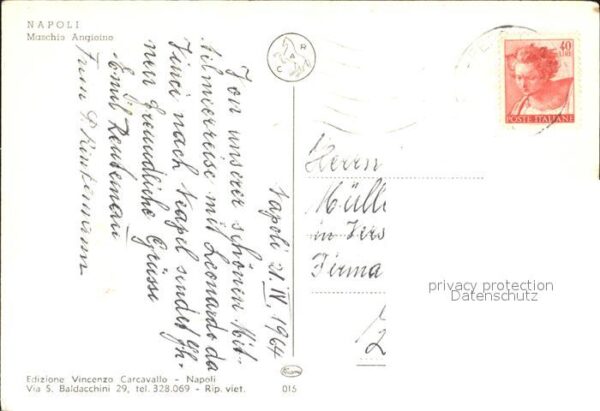 NAPOLI
Maschio Angioino
Napoli 21.IV.1964
Von unserer schönen Mit-
telmeerreise mit Leonardo da
Vinci nach Neapel sendet Ih-
nen freundliche Grüsse
Emil
Frau
C A R
40
LIRE
POSTE ITALIANE
Herrn
Müll
in Vers
Firma
privacy protection
Datenschutz
Edizione Vincenzo Carcavallo - Napoli
Via S. Baldacchini 29, tel. 328.069 - Rip. viet.
015